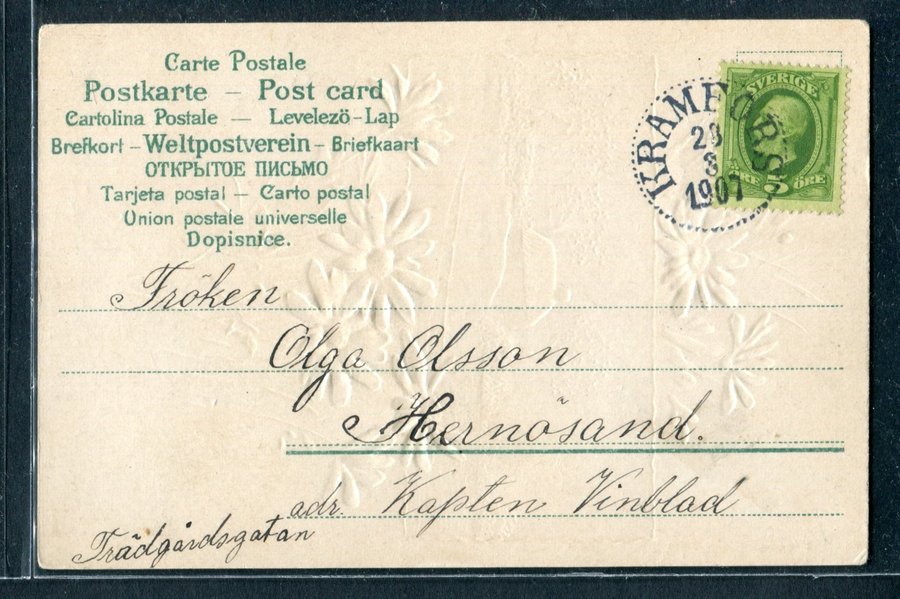 Carte Postale
Postkarte – Post card
Cartolina Postale — Levelezö-Lap
Brefkort – Weltpostverein – Briefkaart
ОТКРЫТОЕ ПИСЬМО
Tarjeta postal — Carto postal
Union postale universelle
Dopisnice.
SVERIGE
ÖRE 5 ÖRE
KRAMFORS
1907
Fröken
Olga Olsson
Hernösand.
adr. Kapten Vinblad
Trädgårdsgatan